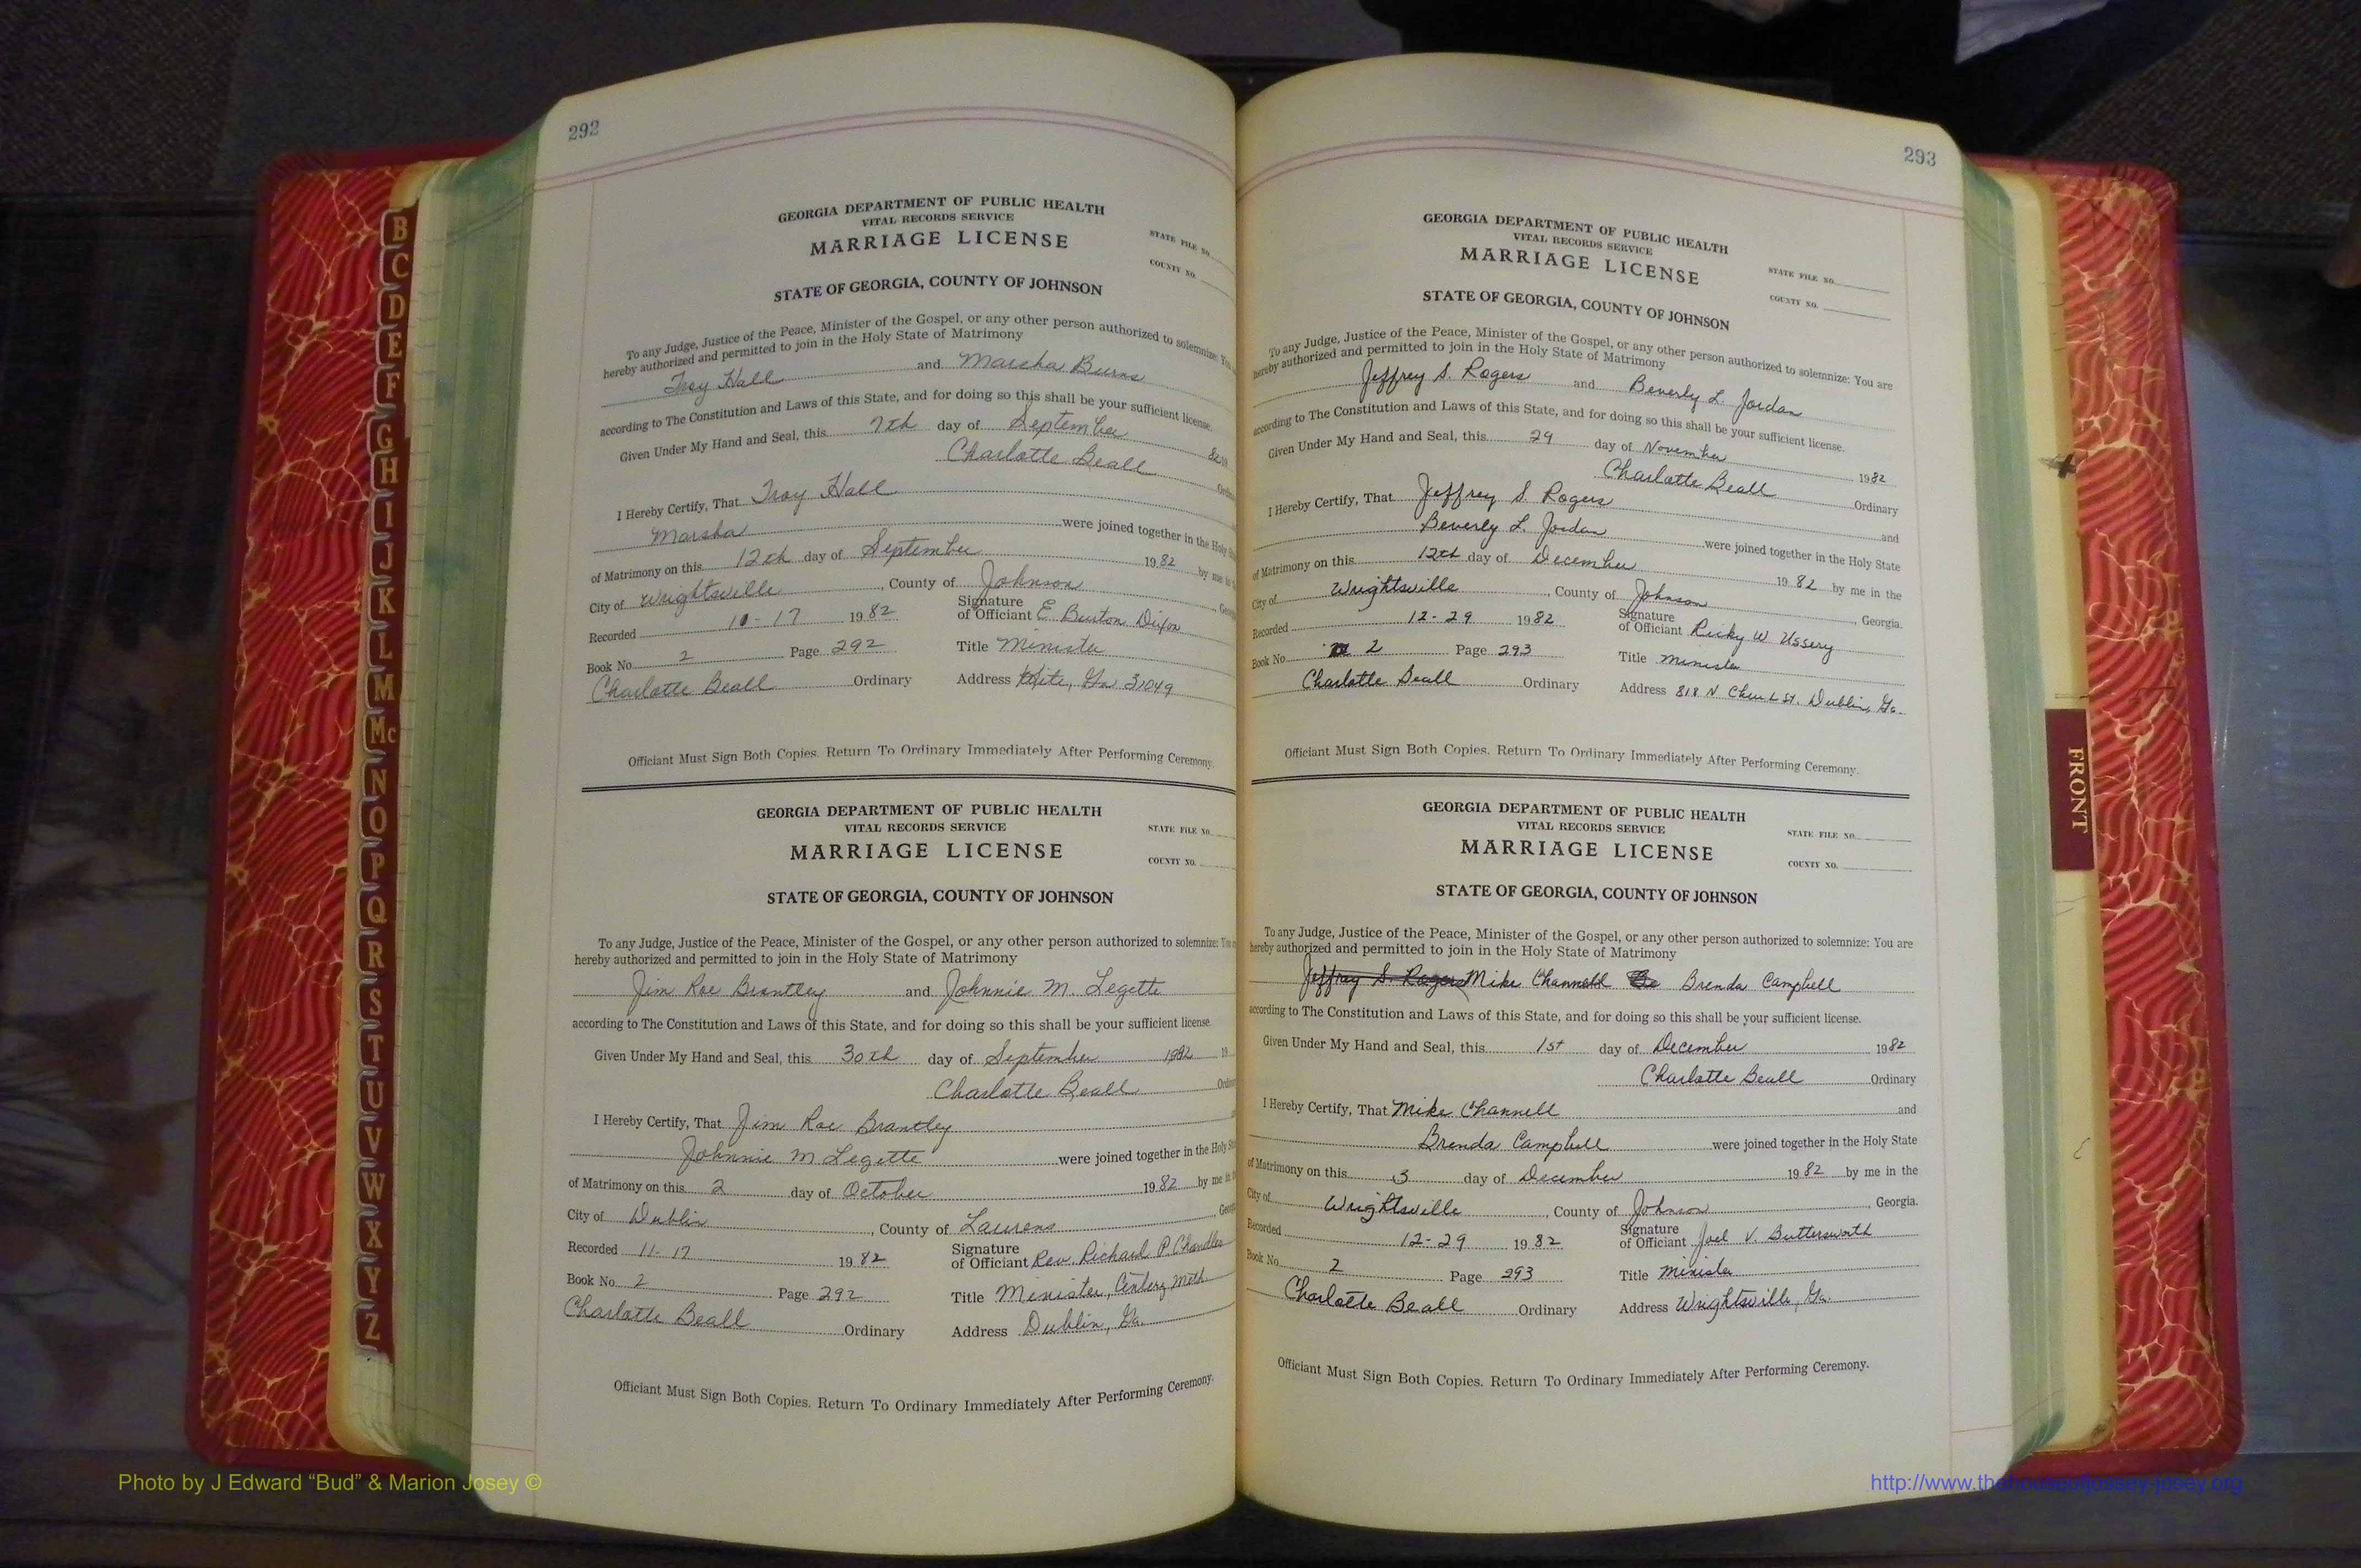 292
GEORGIA DEPARTMENT OF PUBLIC HEALTH
VITAL RECORDS SERVICE
MARRIAGE LICENSE
STATE FILE NO.
COUNTY NO.
STATE OF GEORGIA, COUNTY OF JOHNSON
To any Judge, Justice of the Peace, Minister of the Gospel, or any other person authorized to solemnize:
hereby authorized and permitted to join in the Holy State of Matrimony
Troy Hall and Marsha Burns
according to The Constitution and Laws of this State, and for doing so this shall be your sufficient license.
Given Under My Hand and Seal, this 7th day of September 82
Charlotte Beall
I Hereby Certify, That Troy Hall
Marsha were joined together in the Holy
of Matrimony on this 12th day of September 1982 by me
City of Wrightsville, County of Johnson
Recorded 10-17 1982 Signature of Officiant E Burton Dixon
Book No. 2 Page 292 Title Minister
Charlotte Beall Ordinary Address Kite, Ga 31049
Officiant Must Sign Both Copies. Return To Ordinary Immediately After Performing Ceremony.
GEORGIA DEPARTMENT OF PUBLIC HEALTH
VITAL RECORDS SERVICE
MARRIAGE LICENSE
STATE FILE NO.
COUNTY NO.
STATE OF GEORGIA, COUNTY OF JOHNSON
To any Judge, Justice of the Peace, Minister of the Gospel, or any other person authorized to solemnize:
hereby authorized and permitted to join in the Holy State of Matrimony
Jim Roe Brantley and Johnnie M. Legette
according to The Constitution and Laws of this State, and for doing so this shall be your sufficient license.
Given Under My Hand and Seal, this 30th day of September 1982 19
Charlotte Beall
I Hereby Certify, That Jim Roe Brantley
Johnnie M Legette were joined together in the Holy
of Matrimony on this 2 day of October 1982 by me
City of Dublin, County of Laurens
Recorded 11-17 1982 Signature of Officiant Rev. Richard P. Chandler
Book No. 2 Page 292 Title Minister, Meth.
Charlotte Beall Ordinary Address Dublin, Ga.
Officiant Must Sign Both Copies. Return To Ordinary Immediately After Performing Ceremony.
293
GEORGIA DEPARTMENT OF PUBLIC HEALTH
VITAL RECORDS SERVICE
MARRIAGE LICENSE
STATE FILE NO.
COUNTY NO.
STATE OF GEORGIA, COUNTY OF JOHNSON
To any Judge, Justice of the Peace, Minister of the Gospel, or any other person authorized to solemnize: You are
hereby authorized and permitted to join in the Holy State of Matrimony
Jeffrey S. Rogers and Beverly L. Jordan
according to The Constitution and Laws of this State, and for doing so this shall be your sufficient license.
Given Under My Hand and Seal, this 29 day of November 1982
Charlotte Beall Ordinary
I Hereby Certify, That Jeffrey S. Rogers and
Beverly L. Jordan were joined together in the Holy State
of Matrimony on this 12th day of December 1982 by me in the
City of Wrightsville, County of Johnson, Georgia.
Recorded 12-29 1982 Signature of Officiant Ricky W Ussery
Book No. 2 Page 293 Title Minister
Charlotte Beall Ordinary Address 818 N Church St. Dublin, Ga.
Officiant Must Sign Both Copies. Return To Ordinary Immediately After Performing Ceremony.
GEORGIA DEPARTMENT OF PUBLIC HEALTH
VITAL RECORDS SERVICE
MARRIAGE LICENSE
STATE FILE NO.
COUNTY NO.
STATE OF GEORGIA, COUNTY OF JOHNSON
To any Judge, Justice of the Peace, Minister of the Gospel, or any other person authorized to solemnize: You are
hereby authorized and permitted to join in the Holy State of Matrimony
Jeffrey S. Rogers Mike Channell Brenda Campbell
according to The Constitution and Laws of this State, and for doing so this shall be your sufficient license.
Given Under My Hand and Seal, this 1st day of December 1982
Charlotte Beall Ordinary
I Hereby Certify, That Mike Channell and
Brenda Campbell were joined together in the Holy State
of Matrimony on this 3 day of December 1982 by me in the
City of Wrightsville, County of Johnson, Georgia.
Recorded 12-29 1982 Signature of Officiant Joel V. Buttersworth
Book No. 2 Page 293 Title Minister
Charlotte Beall Ordinary Address Wrightsville, Ga.
Officiant Must Sign Both Copies. Return To Ordinary Immediately After Performing Ceremony.
B
C
D
E
F
G
H
I
J
K
L
M
Mc
N
O
P
Q
R
S
T
U
V
W
X
Y
Z
FRONT
Photo by J Edward “Bud” & Marion Josey ©
http://www.thehouseofjossey-josey.org